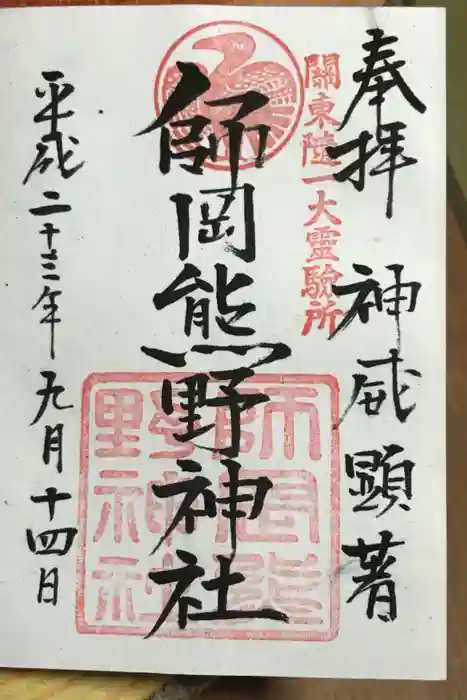 奉拝 神威顕著
關東隨一大靈驗所
師岡熊野神社
師岡熊野神社
平成二十三年九月十四日